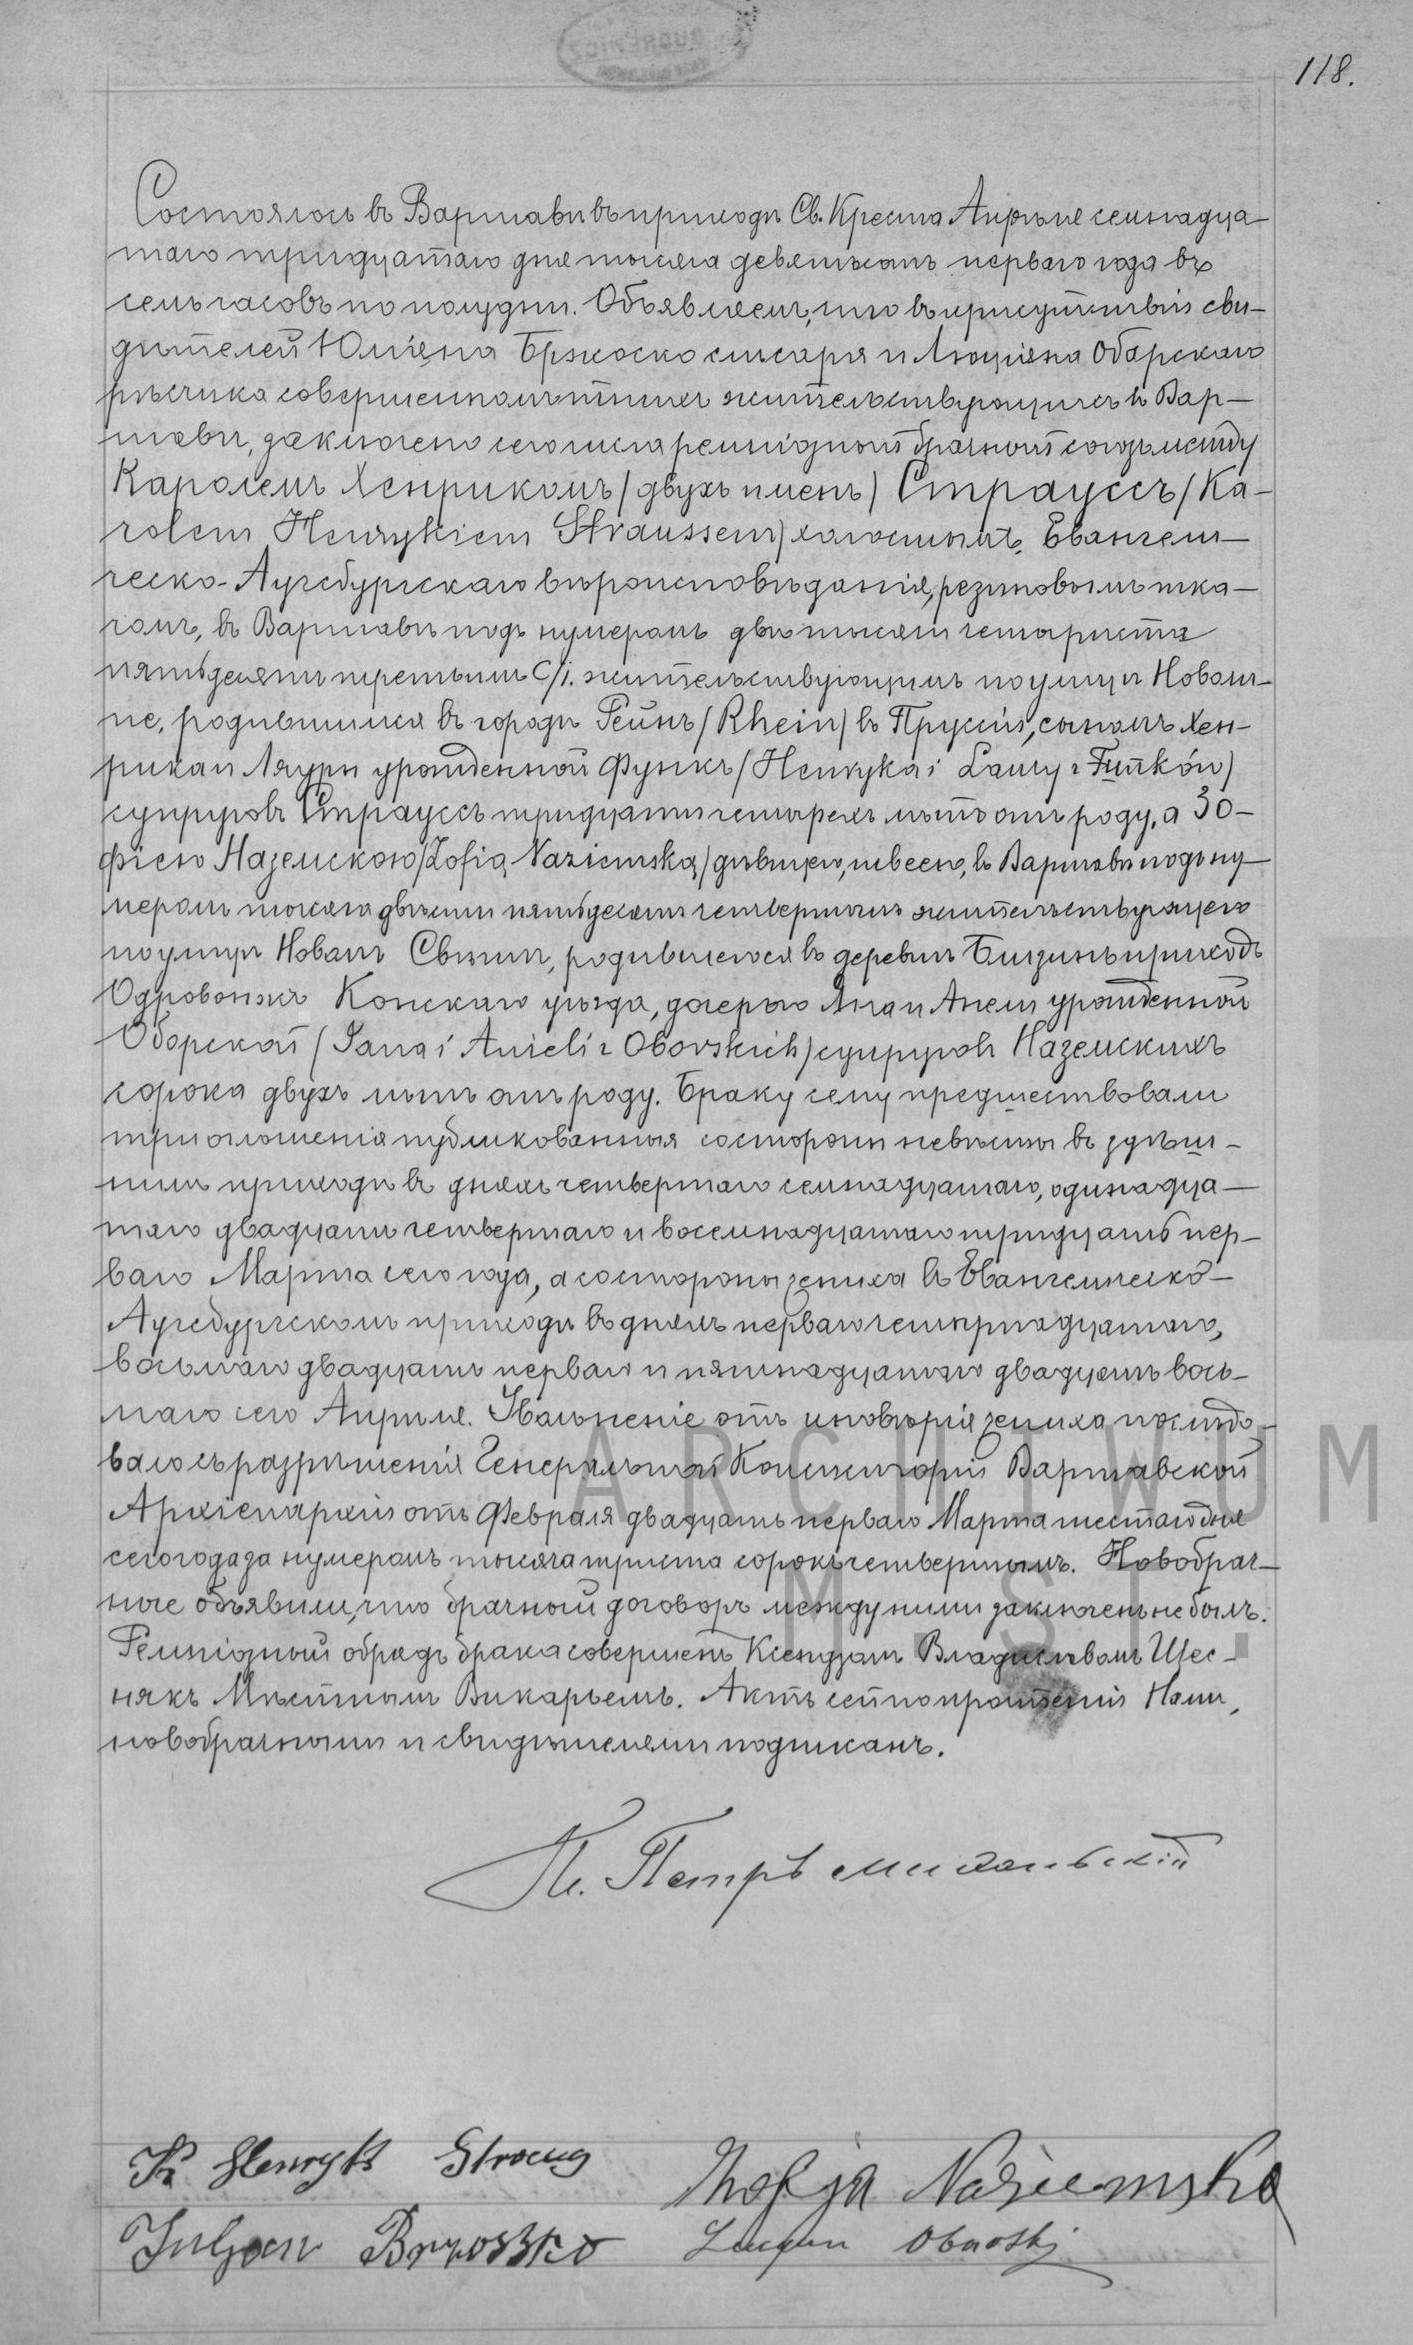 118.
Состоялось въ Варшавѣ въ приходѣ Св. Креста Апрѣля семнадца-
таго тридцатаго дня тысяча девятьсотъ перваго года въ
семь часовъ по полудни. Объявляемъ, что въ присутствіи сви-
дѣтелей Юліяна Бржоско слесаря и Люціяна Оборскаго
рѣсчика совершеннолѣтнихъ жительствующихъ въ Вар-
шавѣ, заключено сего числа религіозный брачный союзъ между
Каролемъ Хенрикомъ /двухъ именъ/ Страуссъ /Ka-
rolem Henrykiem Straussem/ холостымъ, Евангели-
ческо-Аугсбургскаго вѣроисповѣданія, резиновымъ тка-
чомъ, въ Варшавѣ подъ нумеромъ двѣ тысячи четыриста
пятьдесятъ третьимъ С/i. жительствующимъ по улицѣ Новоли-
пе, родившимся въ городѣ Рейнъ /Rhein/ въ Пруссіи, сыномъ Хен-
рика и Ляуры урожденной Функъ /Henryka i Laury z Funków/
супруговъ Страуссъ тридцати четырехъ лѣтъ отъ роду, а Зо-
фіею Наземскою /Zofią Naziemską/ дѣвицею, швеею, въ Варшавѣ подъ ну-
меромъ тысяча двѣсти пятьдесятъ четвертымъ жительствующею
по улицѣ Новомъ Свѣтѣ, родившеюся въ деревнѣ Близинъ приходъ
Одровонжъ Конскаго уѣзда, дочерью Яна и Анели урожденной
Оборской /Jana i Anieli z Oborskich/ супруговъ Наземскихъ
сорока двухъ лѣтъ отъ роду. Браку сему предшествовали
три оглошенія публикованныя со стороны невѣсты въ здѣш-
нимъ приходѣ въ дняхъ четвертаго семнадцатаго, одинадца-
таго двадцать четвертаго и восемнадцатаго тридцать пер-
ваго Марта сего года, а со стороны жениха въ Евангелическо-
Аугсбургскомъ приходѣ въ дняхъ перваго четырнадцатаго,
восьмаго двадцать перваго и пятнадцатаго двадцать вось-
маго сего Апрѣля. Увольненіе отъ иновѣрія жениха послѣдо-
вало съ разрѣшенія Генеральной Консисторіи Варшавской
Архіепархіи отъ Февраля двадцать перваго Марта шестаго дня
сего года за нумеромъ тысяча триста сорокъ четвертымъ. Новобрач-
ные объявили, что брачный договоръ между ними заключенъ не былъ.
Религіозный обрядъ брака совершенъ Ксендзомъ Владиславомъ Щес-
някъ Мѣстнымъ Викарьемъ. Актъ сей по прочтеніи Нами,
новобрачными и свидѣтелями подписанъ.
Кс. Петръ Михальскій
K Henryk Straus
Zhofja Naziemska
Juljan Brzosko
Lucyan Oborski
ARCHIWUM
M. ST.